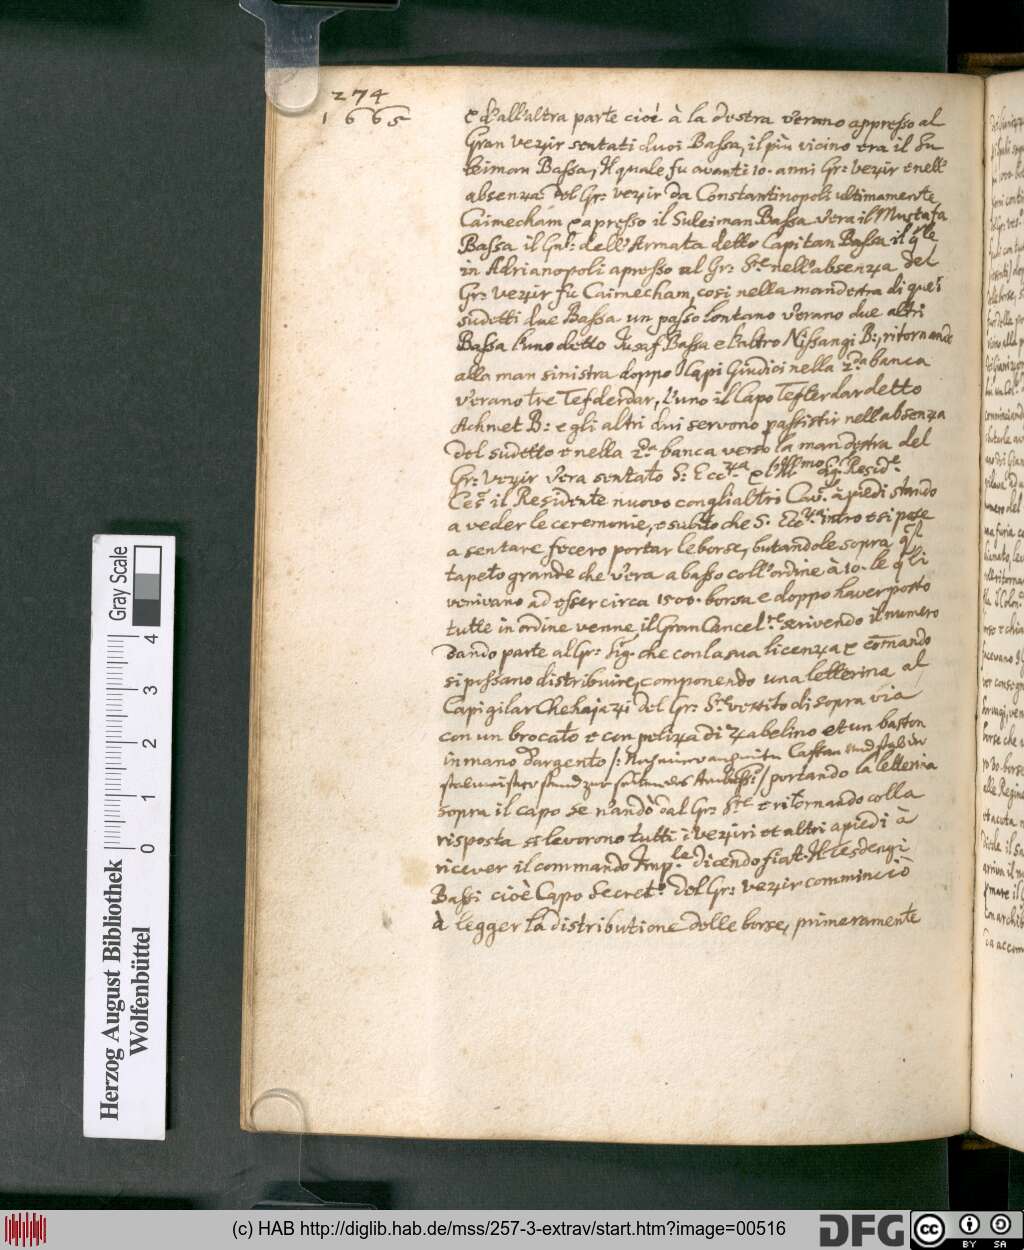 274
1665
e d'all'altra parte cioè à la destra v'erano appresso al
Gran vezir sentati duoi Bassa, il più vicino era il Su
leiman Bassa, Il quale fu avanti 10. anni Gr: vezir e nell'
absenza del Gr: vezir da Constantinopoli ultimamente
Caimecham e apresso il Suleiman Bassa v'era il Mustafa
Bassa il Gnl: dell'Armata detto Capitan Bassa il qle
in Adrianopoli apresso al Gr: Sre nell'absenza del
Gr: vezir fù Caimecham, cosi nella man destra di quei
sudetti due Bassa un passo lontano v'erano due altri
Bassa l'uno detto Jusaf Bassa e l'altro Nissangi B:, ritornando
alla man sinistra doppo li Capi Giudici nella 2da banca
v'erano tre Tefderdar, l'uno il Capo Tefterdar detto
Achmet B: e gli altri dui servono p assistir nell'absenza
del sudetto e nella 2da banca verso la man destra del
Gr: vezir v'era sentato S: Ecc.za e l'Illmo Sigr Reside
Ces: il Residente nuovo con gli altri Cavri à piedi stando
a veder le ceremonie, e subito che S. Ecc.za intro e si pose
a sentare fecero portar le borse, butandole sopra qsl
tapeto grande che v'era a basso coll'ordine à 10. le qli
venivano ad esser circa 1500. borse e doppo haver posto
tutte in ordine venne il Gran Cancelre scrivendo il numero
dando parte al Gr: Sig. che con la sua licenza e comando
si possano distribuire, componendo una letterina al
Capigilar Chehajazi del Gr: Sre vestito di sopra via
con un brocato e con peliza di zabelino et un baston
in mano d'argento /:
/ portando la letterina
sopra il capo se n'andò dal Gr: Sre e ritornando colla
risposta si levorono tutti i veziri et altri a piedi à
ricever il commando Imp.le dicendo fiat. Il Tesdengi
Bassi cioè Capo Secreto del Gr: vezir comminciò
à legger la distributione delle borse, primeramente
Gray Scale
4
3
2
1
0
Herzog August Bibliothek
Wolfenbüttel
(c) HAB http://diglib.hab.de/mss/257-3-extrav/start.htm?image=00516
DFG
cc
BY SA